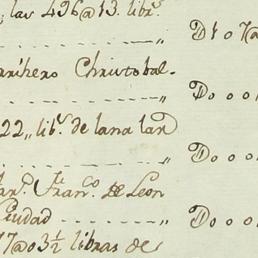 , lav 496@13. libr.s
D 1 0 7@
ariñero Christobal.
D. o o o
22,, lib.s de lana lav
D. o o o
Fran.co de Leon
Ciudad
D. o o o
7@0 3½ libras de